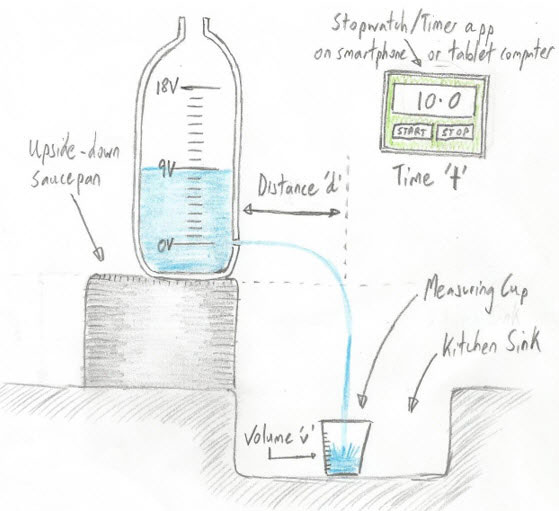 Stopwatch/Timer app
on smartphone or tablet computer
10.0
START STOP
Time 't'
18V
9V
0V
Upside-down
saucepan
Distance 'd'
Measuring Cup
Kitchen Sink
Volume 'v'